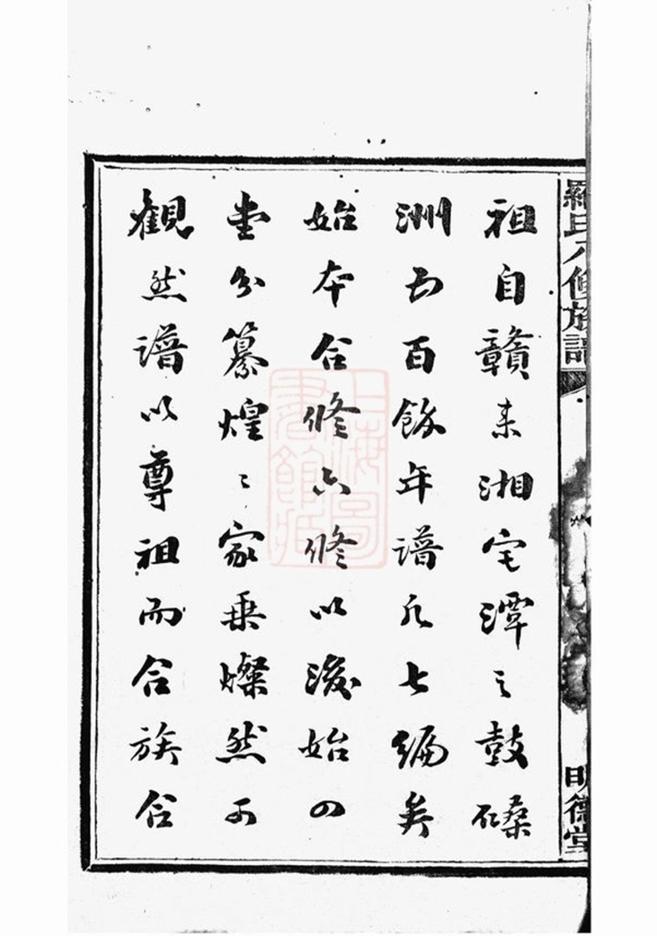 羅氏八修族譜
明德堂
祖自贛来湘宅潭之鼓磉
洲五百餘年譜凡七編矣
始本合修六修以後始四
堂分纂煌〻家乗燦然可
觀然譜以尊祖而合族合
上海圖書館藏